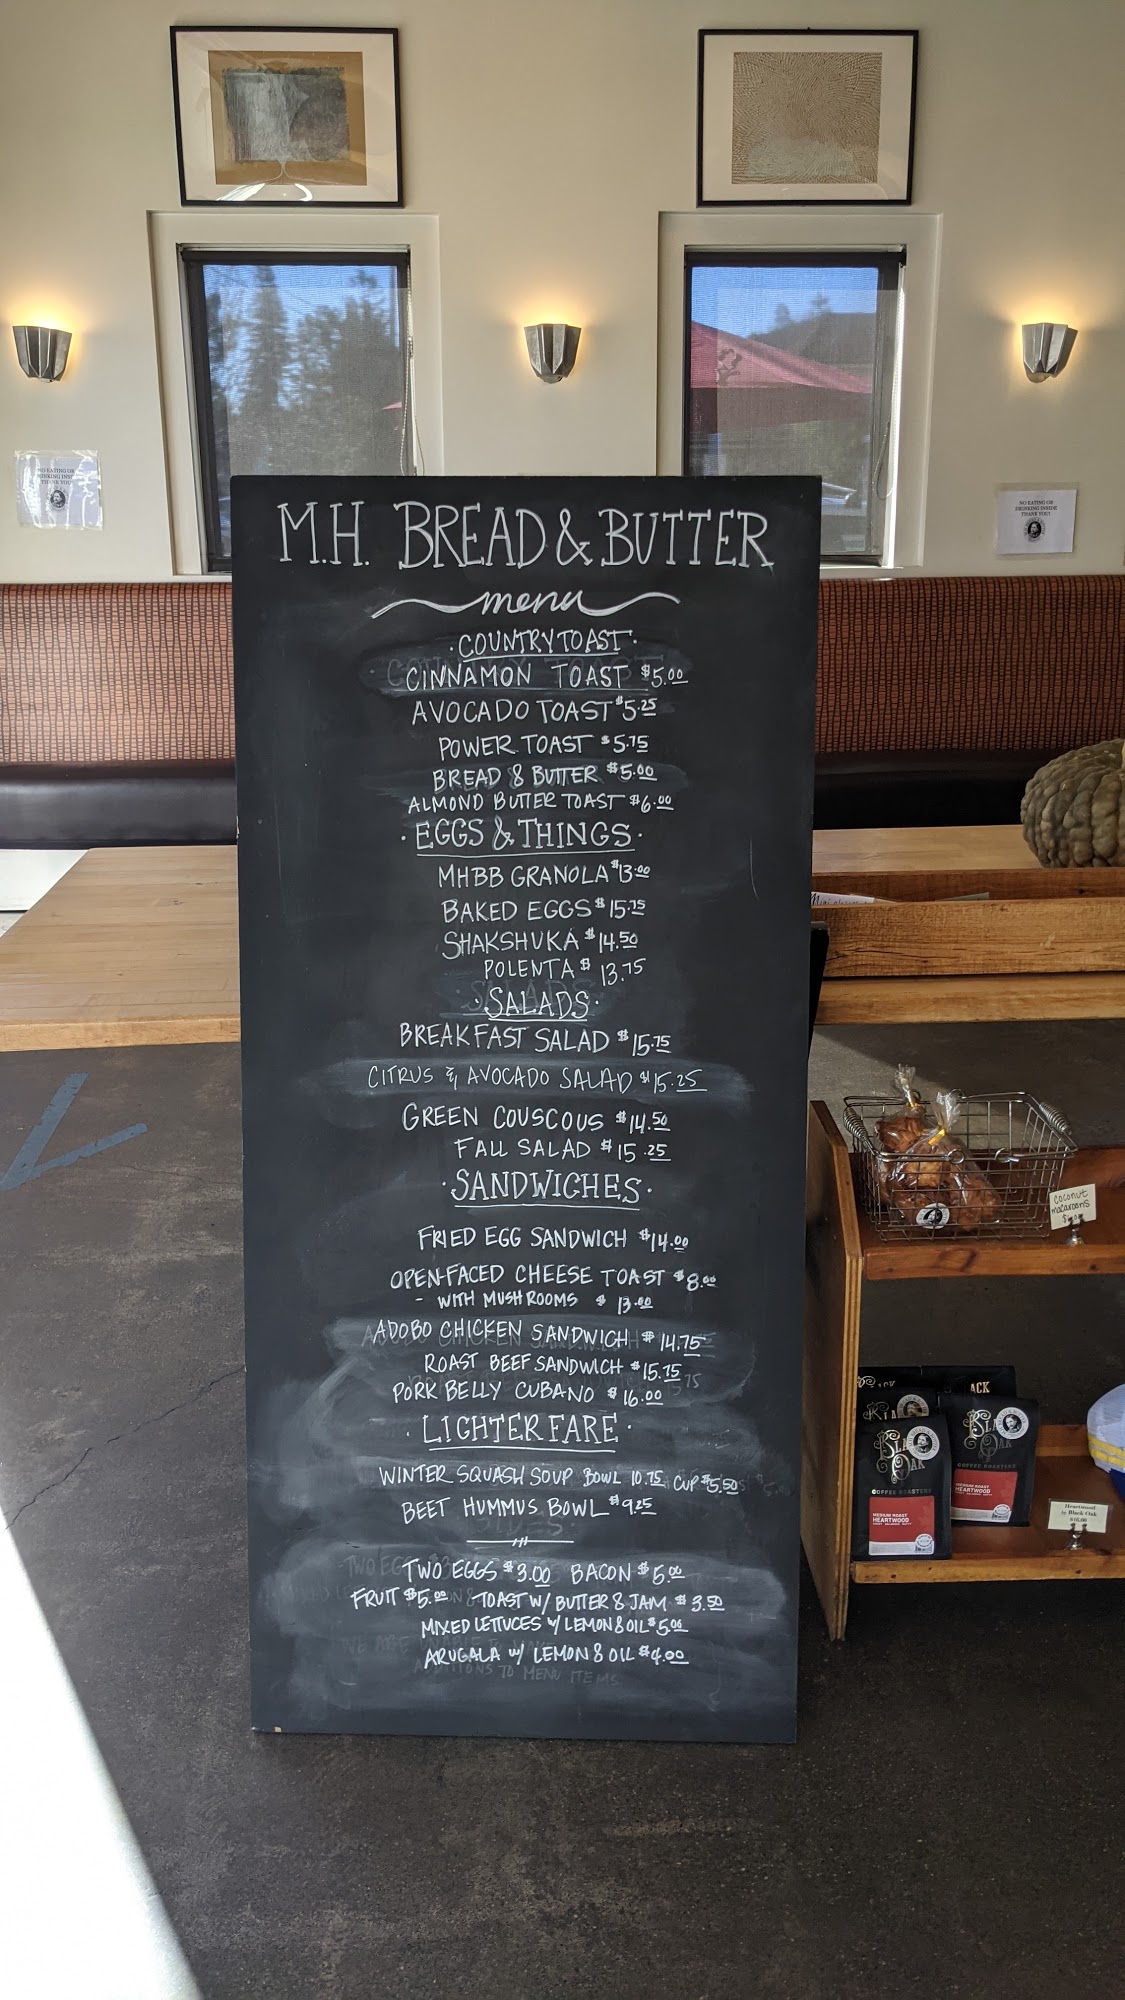 NO EATING OR
DRINKING INSIDE
THANK YOU!
NO EATING OR
DRINKING INSIDE
THANK YOU!
M.H. BREAD & BUTTER
menu
· COUNTRY TOAST ·
CINNAMON TOAST $5.00
AVOCADO TOAST $5.25
POWER TOAST $5.75
BREAD & BUTTER $5.00
ALMOND BUTTER TOAST $6.00
· EGGS & THINGS ·
MHBB GRANOLA $13.00
BAKED EGGS $15.75
SHAKSHUKA $14.50
POLENTA $13.75
· SALADS ·
BREAKFAST SALAD $15.75
CITRUS & AVOCADO SALAD $15.25
GREEN COUSCOUS $14.50
FALL SALAD $15.25
· SANDWICHES ·
FRIED EGG SANDWICH $14.00
OPEN-FACED CHEESE TOAST $8.00
- WITH MUSHROOMS $13.00
ADOBO CHICKEN SANDWICH $14.75
ROAST BEEF SANDWICH $15.75
PORK BELLY CUBANO $16.00
· LIGHTER FARE ·
WINTER SQUASH SOUP BOWL 10.75 CUP $5.50
BEET HUMMUS BOWL $9.25
TWO EGGS $3.00 BACON $5.00
FRUIT $5.00 TOAST W/ BUTTER & JAM $3.50
MIXED LETTUCES W/ LEMON & OIL $5.00
ARUGALA W/ LEMON & OIL $4.00
ADDITIONS TO MENU ITEMS
coconut
macaroons
BLACK
OAK
COFFEE ROASTERS
MEDIUM ROAST
HEARTWOOD
BLACK
OAK
COFFEE ROASTERS
MEDIUM ROAST
HEARTWOOD
Heartwood
by Black Oak
$16.00